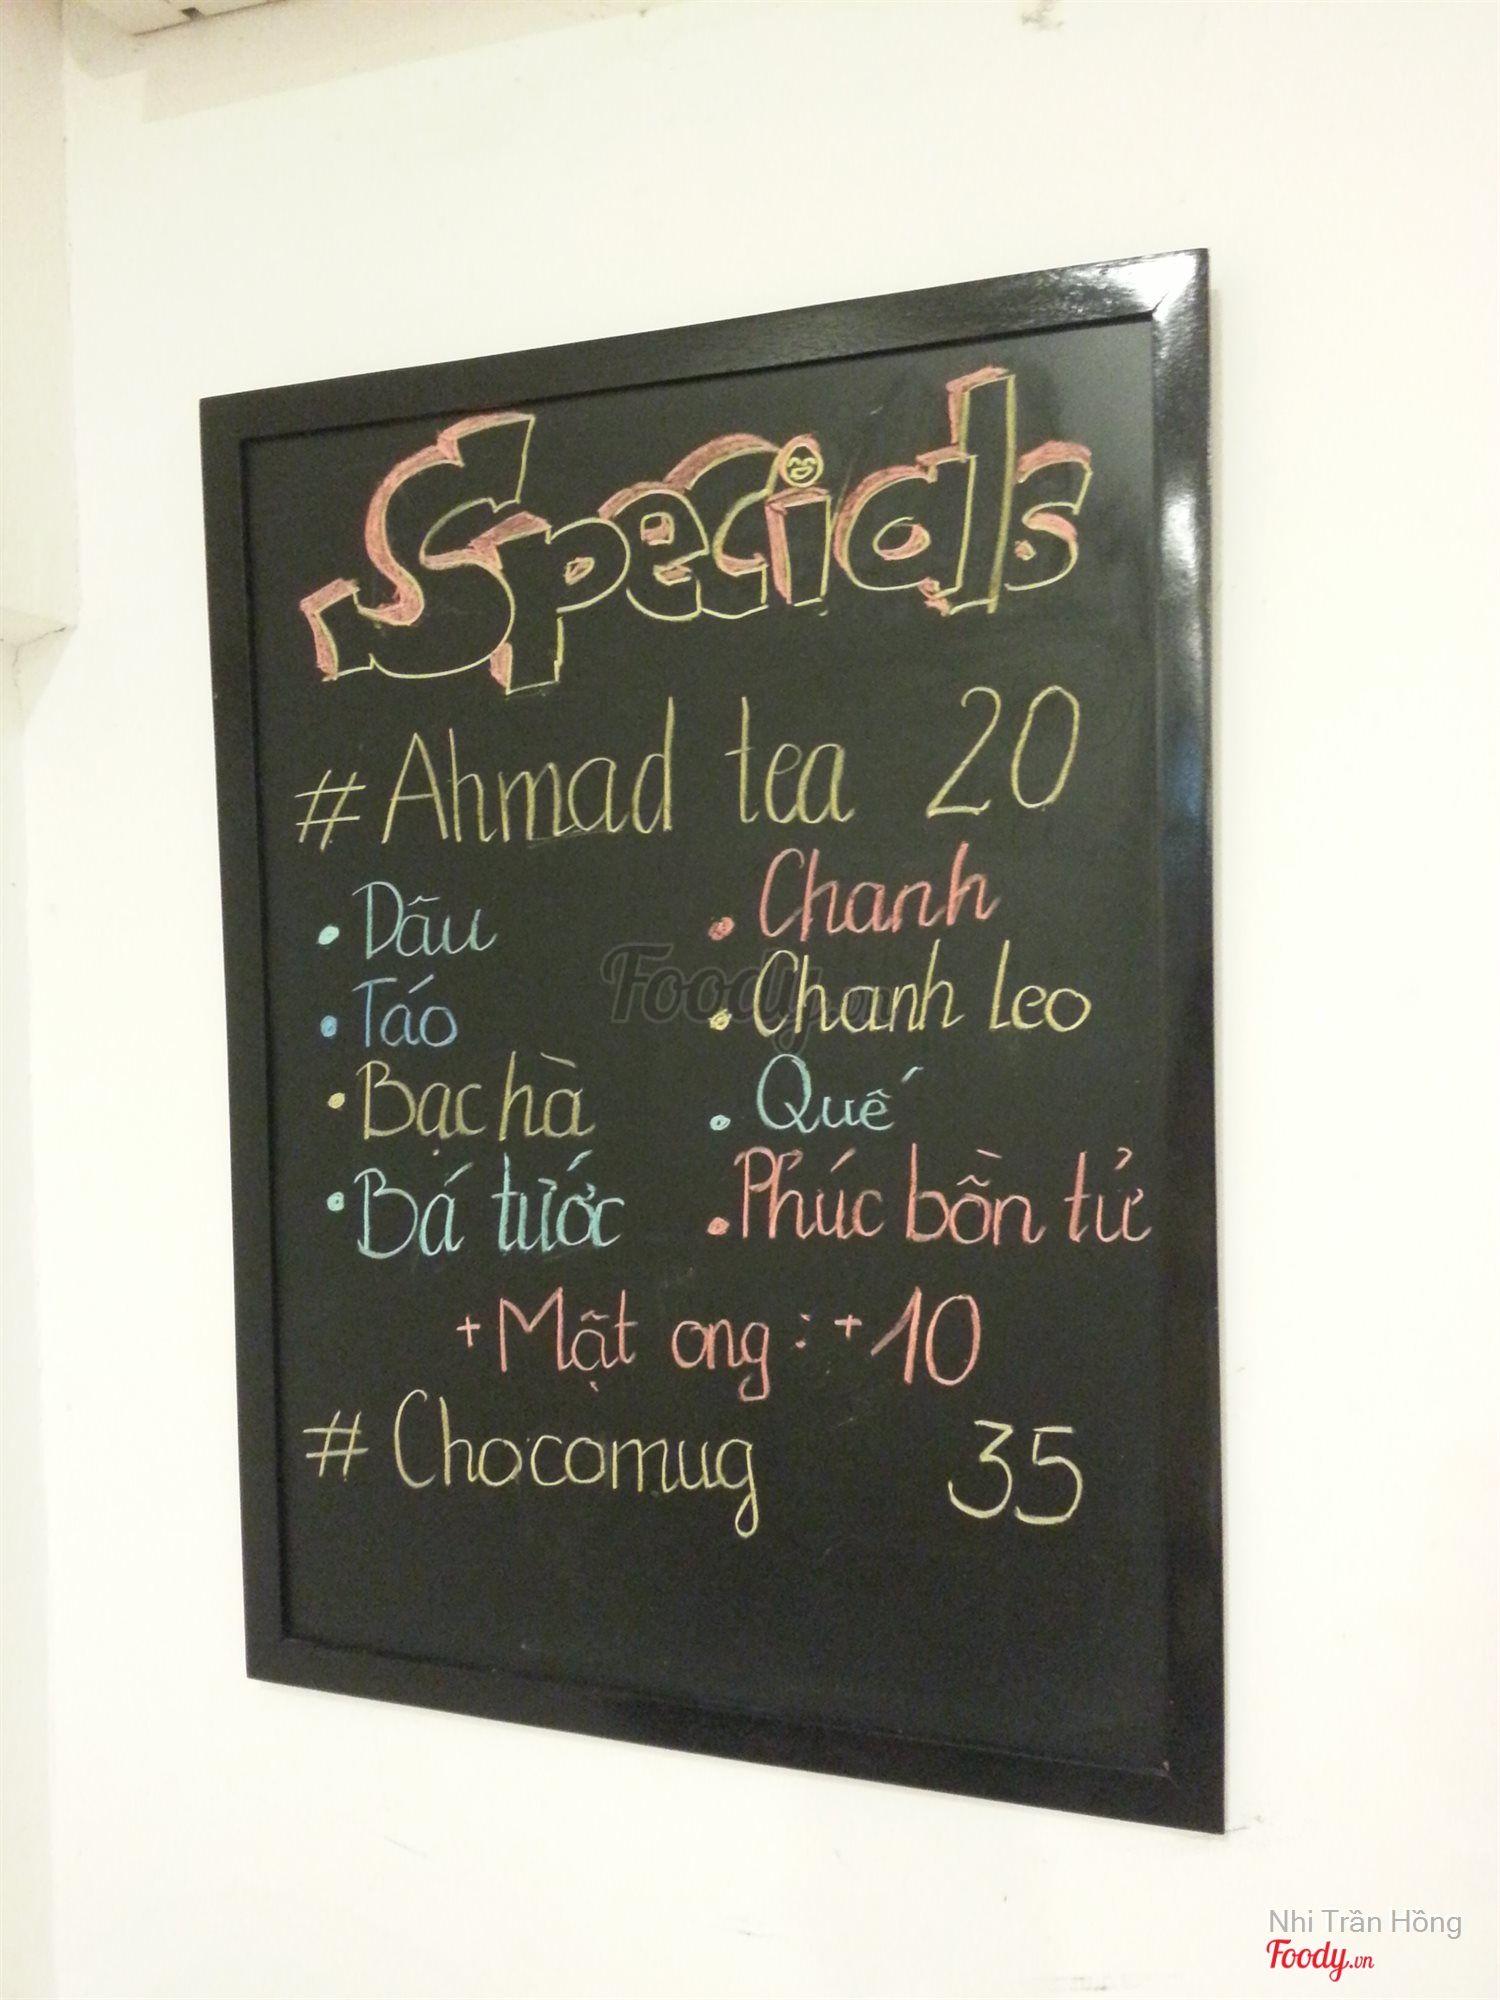 Specials
#Ahmad tea 20
• Dâu
• Chanh
• Táo
• Chanh leo
• Bạc hà
• Quế
• Bá tước
• Phúc bồn tử
+ Mật ong : +10
# Chocomug 35
Foody.vn
Nhi Trần Hồng
Foody.vn